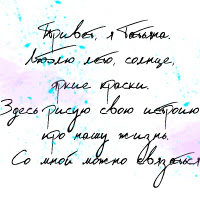 Привет, я Татьяна.
Люблю лето, солнце,
яркие краски.
Здесь рисую свою историю
про нашу жизнь.
Со мной можно связаться